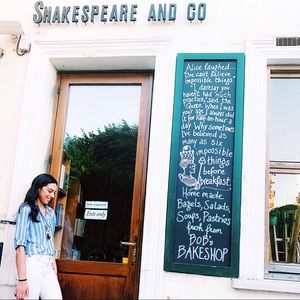 SHAKESPEARE AND CO
Alice laughed...
"One can't believe
impossible things."
"I daresay you
haven't had much
practice," said the
Queen. When I was
your age I always did
it for half-an-hour a
day. Why sometimes
I've believed as
many as six
impossible
things
before
breakfast.
Home made
Bagels, Salads
Soups, Pastries
fresh from
BOB'S
BAKESHOP
Exit only